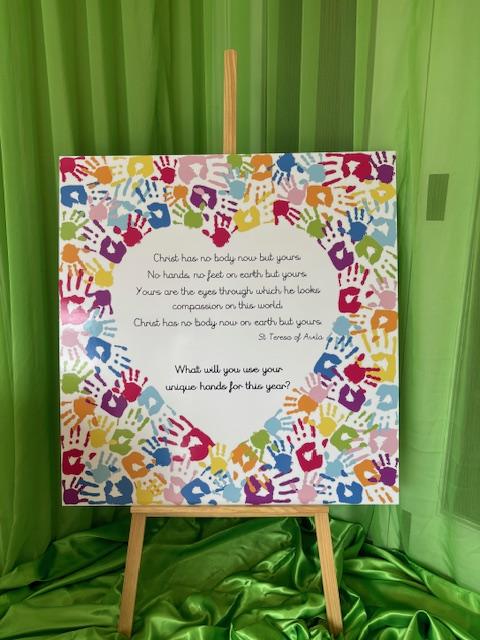 Christ has no body now but yours.
No hands, no feet on earth but yours.
Yours are the eyes through which he looks
compassion on this world.
Christ has no body now on earth but yours.
St Teresa of Avila
What will you use your
unique hands for this year?